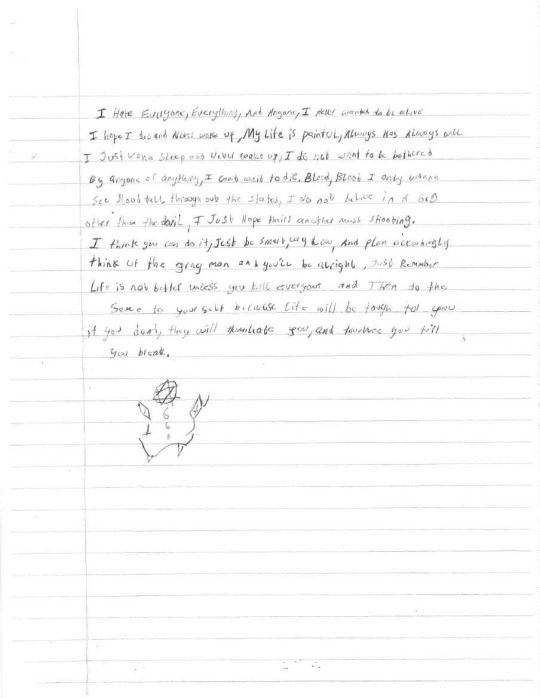 I Hate Everyone, Everything, And Anyone, I never wanted to be alive
I hope I die and Never wake up, My Life is painful, Always Has Always will
I Just wana sleep and Never wake up, I do not want to be bothered
By anyone or anything, I cant wait to die. Blood, Blood I only wanna
See Blood through out the states, I do not belive in a God
other than the devil, I Just Hope theirs another mass shooting.
I think you can do it, Just be smart, Lay Low, And plan accordingly
think of the gray man and you'll be alright, Just Remember
Life is not better unless you kill everyone and Then do the
Same to your self because Life will be tough for you
if you dont, they will you, and torture you till
you break.
6
6
6